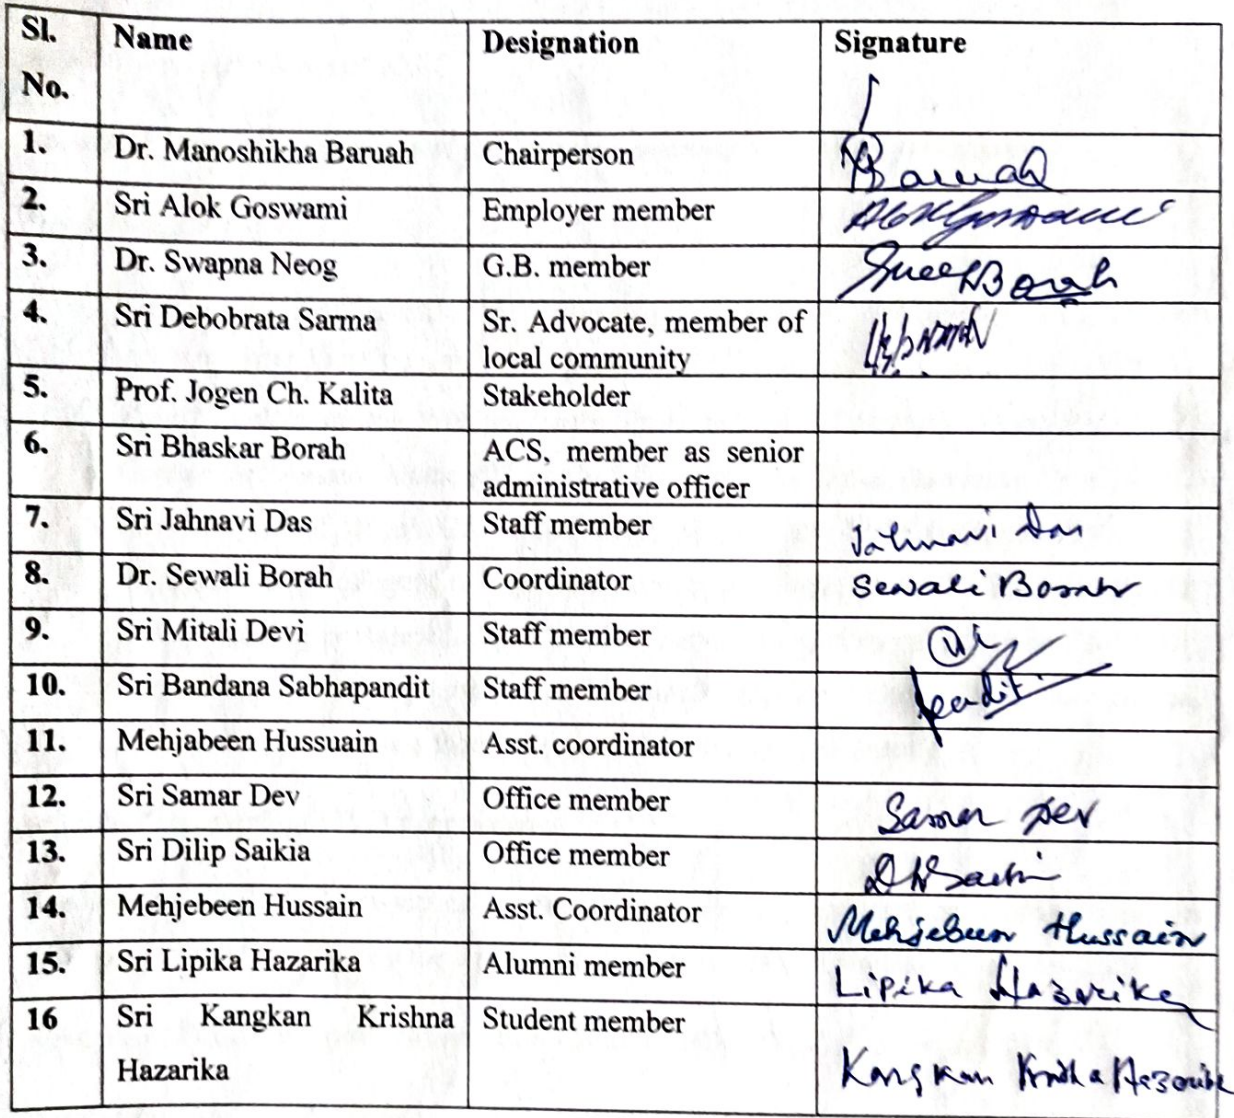 Sl. No. Name Designation Signature
1. Dr. Manoshikha Baruah Chairperson Baruah
2. Sri Alok Goswami Employer member Alok Goswami
3. Dr. Swapna Neog G.B. member Borah
4. Sri Debobrata Sarma Sr. Advocate, member of
local community
5. Prof. Jogen Ch. Kalita Stakeholder
6. Sri Bhaskar Borah ACS, member as senior
administrative officer
7. Sri Jahnavi Das Staff member Jahnavi Das
8. Dr. Sewali Borah Coordinator Sewali Borah
9. Sri Mitali Devi Staff member
10. Sri Bandana Sabhapandit Staff member
11. Mehjabeen Hussuain Asst. coordinator
12. Sri Samar Dev Office member Samar Dev
13. Sri Dilip Saikia Office member
14. Mehjebeen Hussain Asst. Coordinator Mehjebeen Hussain
15. Sri Lipika Hazarika Alumni member Lipika Hazarika
16 Sri Kangkan Krishna Student member
Hazarika Kangkan Krishna Hazarika